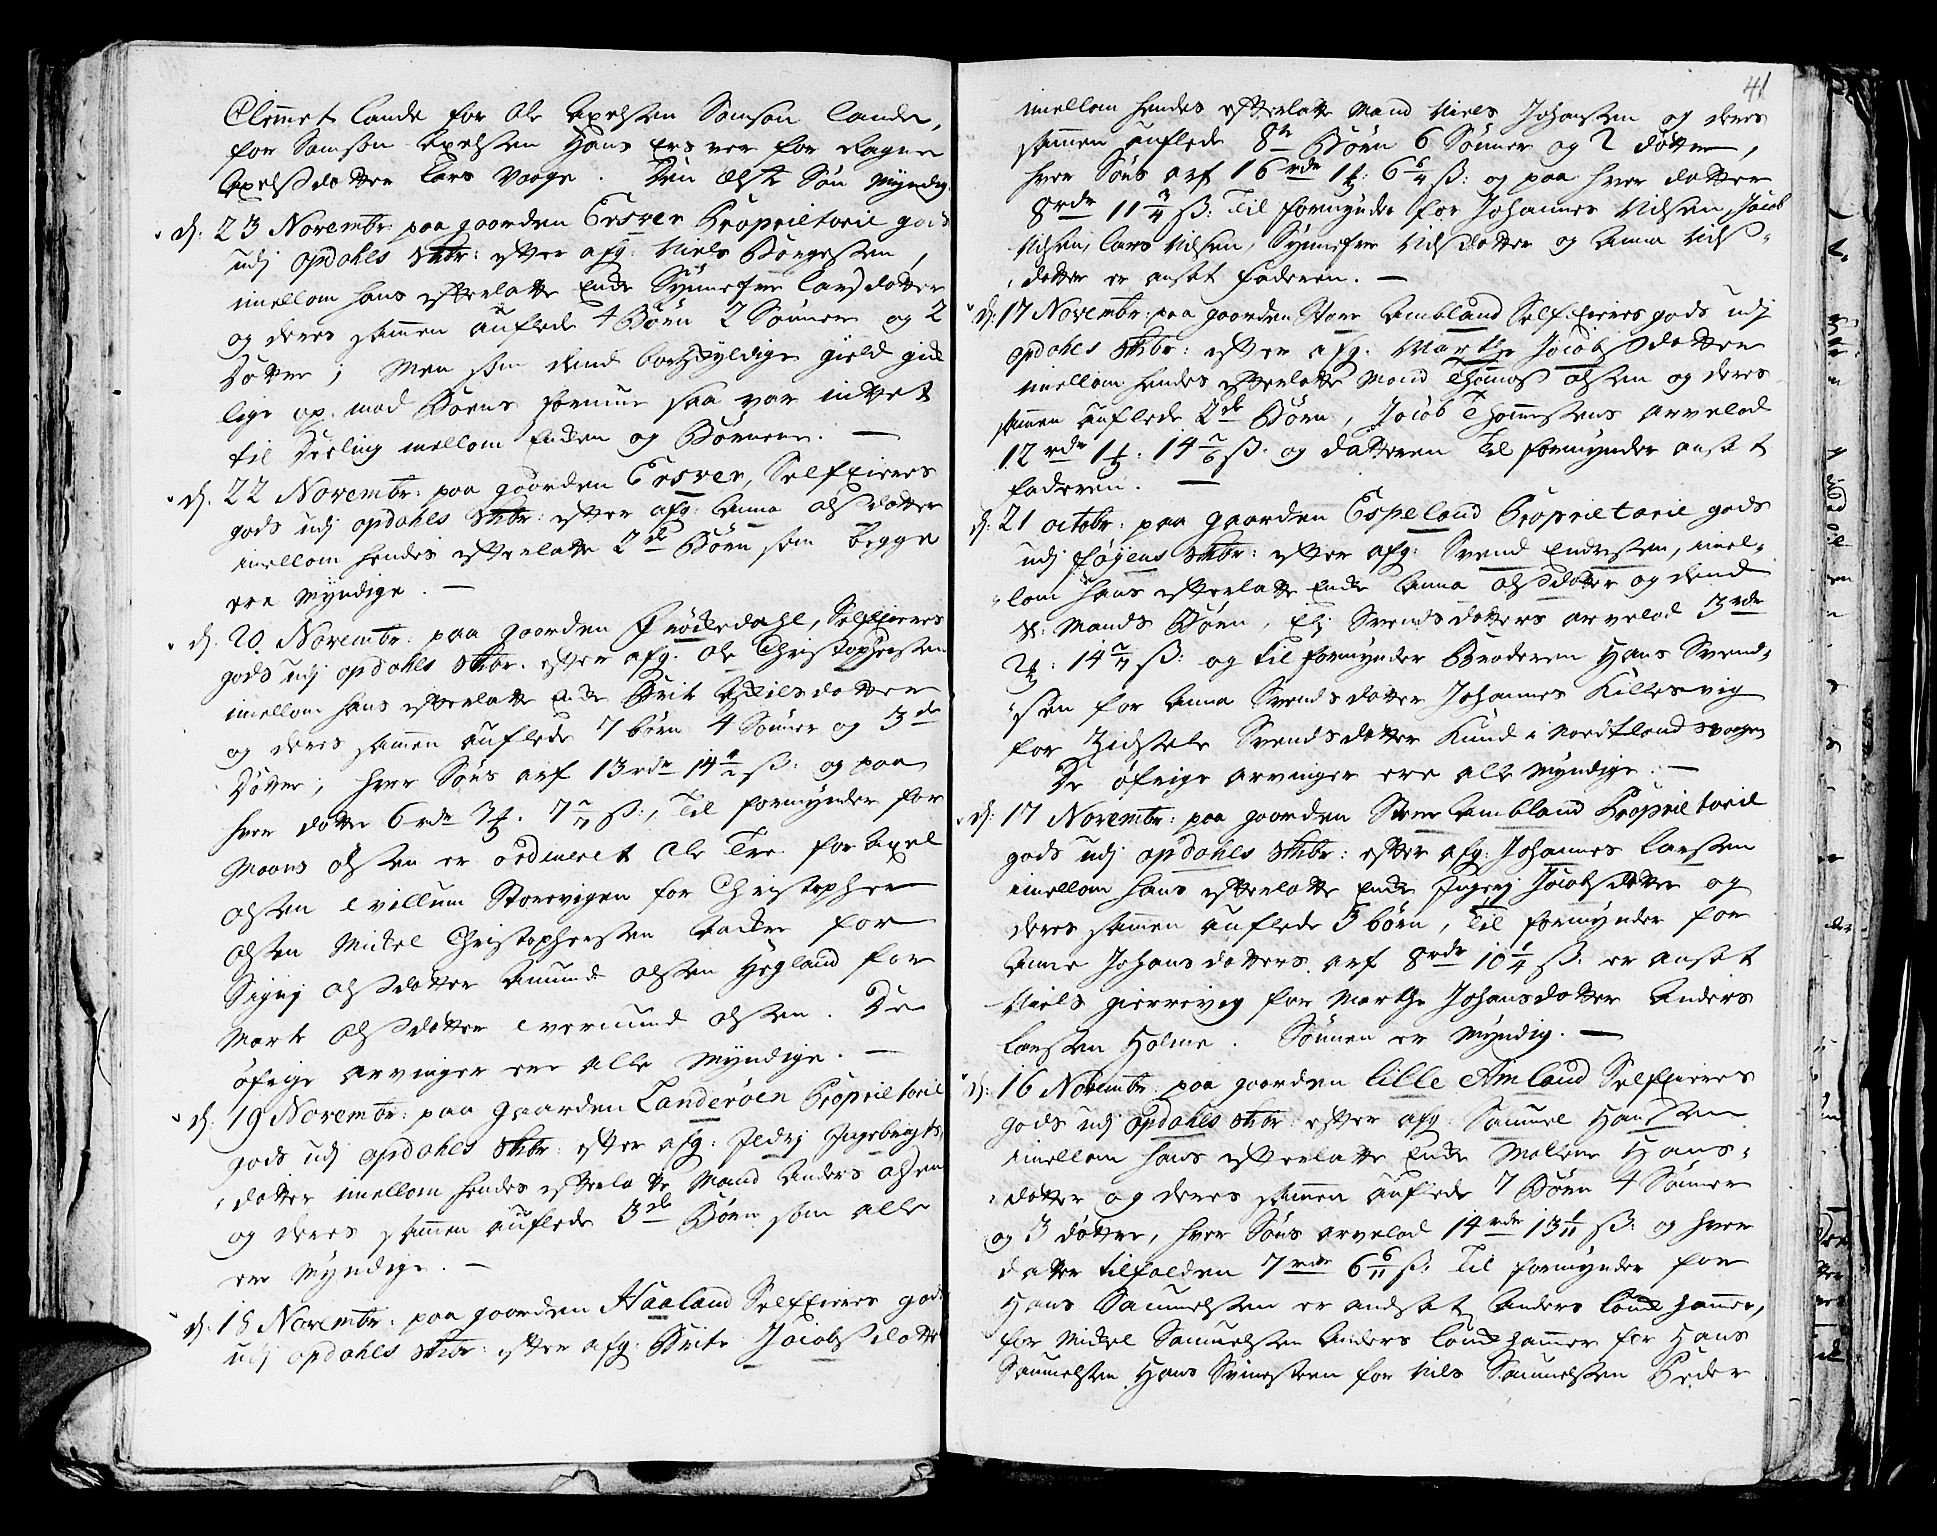 Clemet Lande for Ole Axelsen Samson Lande,
for Samson Axelsen Hans Ersver for Ragne
Axelsdatter Lars Waage. Den ælste Søn Myndig.
d: 23 Novembr: paa gaarden Ersver Proprietarie gods
udj Opdahls Skbr: efter afg: Niels Børgesen,
imellom hans efterlatte Enke Synnefve Larsdatter
og deres sammen auflede 4 Børn 2 Sønner og 2
Døttre; Men som dend bortskyldige gield gik
lige op mod Boens formue saa var intet
til Deeling mellom Enken og Børnene. —
d: 22 Novembr: paa gaarden Ersver, Selfeieres
gods udj Opdahls Skbr: efter afg: Anna Olsdatter
imellom hendes efterlatte 2de Børn som begge
ere Myndige. —
d. 20 Novembr: paa gaarden Frøkedahl, Selfeieres
gods udj Opdahls Skbr. efter afg: Ole Christophersen
imellom hans efterlatte Enke Brite Nielsdatter
og deres sammen auflede 7 børn 4 Sønner og 3de
Døttre; hver Søns arf 13 rdr 14 ß: og paa
hver datter 6 rdr 3 ß:, Til formynder for
Moens Olsen er ordineret Ole Tre for Axel
Olsen Villum Storevigen for Christopher
Olsen Mickel Christophersen Backe for
Signj Olsdatter Amund Olsen Hegland for
Marte Olsdatter Evermund Olsen. De
øfrige arvinger ere alle Myndige. —
d: 19 Novembr: paa gaarden Landerøen Proprietarie
gods udj Opdahls Skbr: efter afg: Jldrj Ingebrigts-
datter imellom hendes efterlatte Mand Anders Olsen
og deres sammen auflede 3de Børn som alle
ere Myndige. —
d: 18 Novembr: paa gaarden Haaland Selfeieres gods
udj Opdahls Skbr: efter afg: Brite Jacobsdatter
41
imellom hendes efterlatte Mand Niels Johansen og deres
sammen auflede 8te Børn 6 Sønner og 2 døttre,
hver Søns arf 16 rdr 1 : 6 ß: og paa hver datter
8 rdr 11 3/4 ß: Til formynder for Johannes Nilsen, Jacob
Nilsen, Lars Nilsen, Synnefve Nilsdatter og Anna Nils-
datter er ansat Faderen. —
d: 17 Novembr: paa gaarden Store Ambland Selfeieres gods udj
Opdahls Skbr: efter afg: Marthe Jacobsdatter
imellom hendes efterlatte Mand Thomas Olsen og deres
sammen auflede 2de Børn, Jacob Thomesens arvelod
12 rdr 1 : 14 ß. og datteren Til formynder ansat
faderen. —
d: 21 octobr: paa gaarden Espeland Proprietarie gods
udj Føyens Skbr: efter afg: Svend Endresen, imel-
lom hans efterlatte Enke Anna Olsdatter og dend
S: Mands Børn, Elj Svendsdatters arvelod 3 rdr
2 : 14 ß: og til formynder Broderen Hans Svend-
sen for Anna Svendsdatter Johannes Killesvig
for Zidsele Svendsdatter Knud i Nordtlandsvogen
De øfrige arvinger ere alle Myndige. —
d: 17 Novembr: paa gaarden Store Ambland Proprietarie
gods udj Opdahls Skbr: efter afg: Johannes Larsen
imellom hans efterlatte Enke Jngerj Jacobsdatter og
deres sammen auflede 3 børn, Til formynder for
Anna Johansdatters arf 8 rdr 10 1/4 ß. er ansat
Niels Gierevig for Marthe Johansdatter Anders
Larsen Holme. Sønnen er Myndig. —
d: 16 Novembr: paa gaarden Lille Amland Selfeieres
gods udj Opdahls Skbr: efter afg: Samuel Hansen
imellom hans efterlatte Enke Malene Hans-
datter og deres sammen auflede 7 Børn 4 Sønner
og 3 døttre, hver Søns arvelod 14 rdr 13 1/11 ß: og hver
datter tilfalden 7 rdr 6 6/11 ß: Til formynder for
Hans Samuelsen er andsat Anders Landhammer,
for Mickel Samuelsen Anders Landhammer for Hans
Samuelsen Hans Svinesteen for Nils Samuelsen Peder